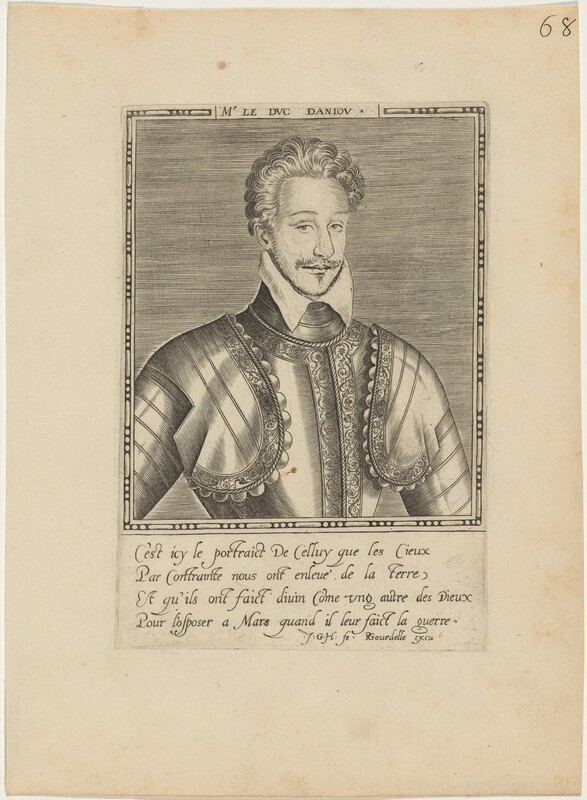 68
Mr LE DVC DANIOV
C'est icy le portraict De Celluy que les Cieux
Par Conttrainte nous ont enleué de la terre,
Et qu'ils ont faict diuin Côme vng autre des Dieux
Pour l'opposer a Mars quand il leur faict la guerre.
I. G. H. fe. RGourdelle excu